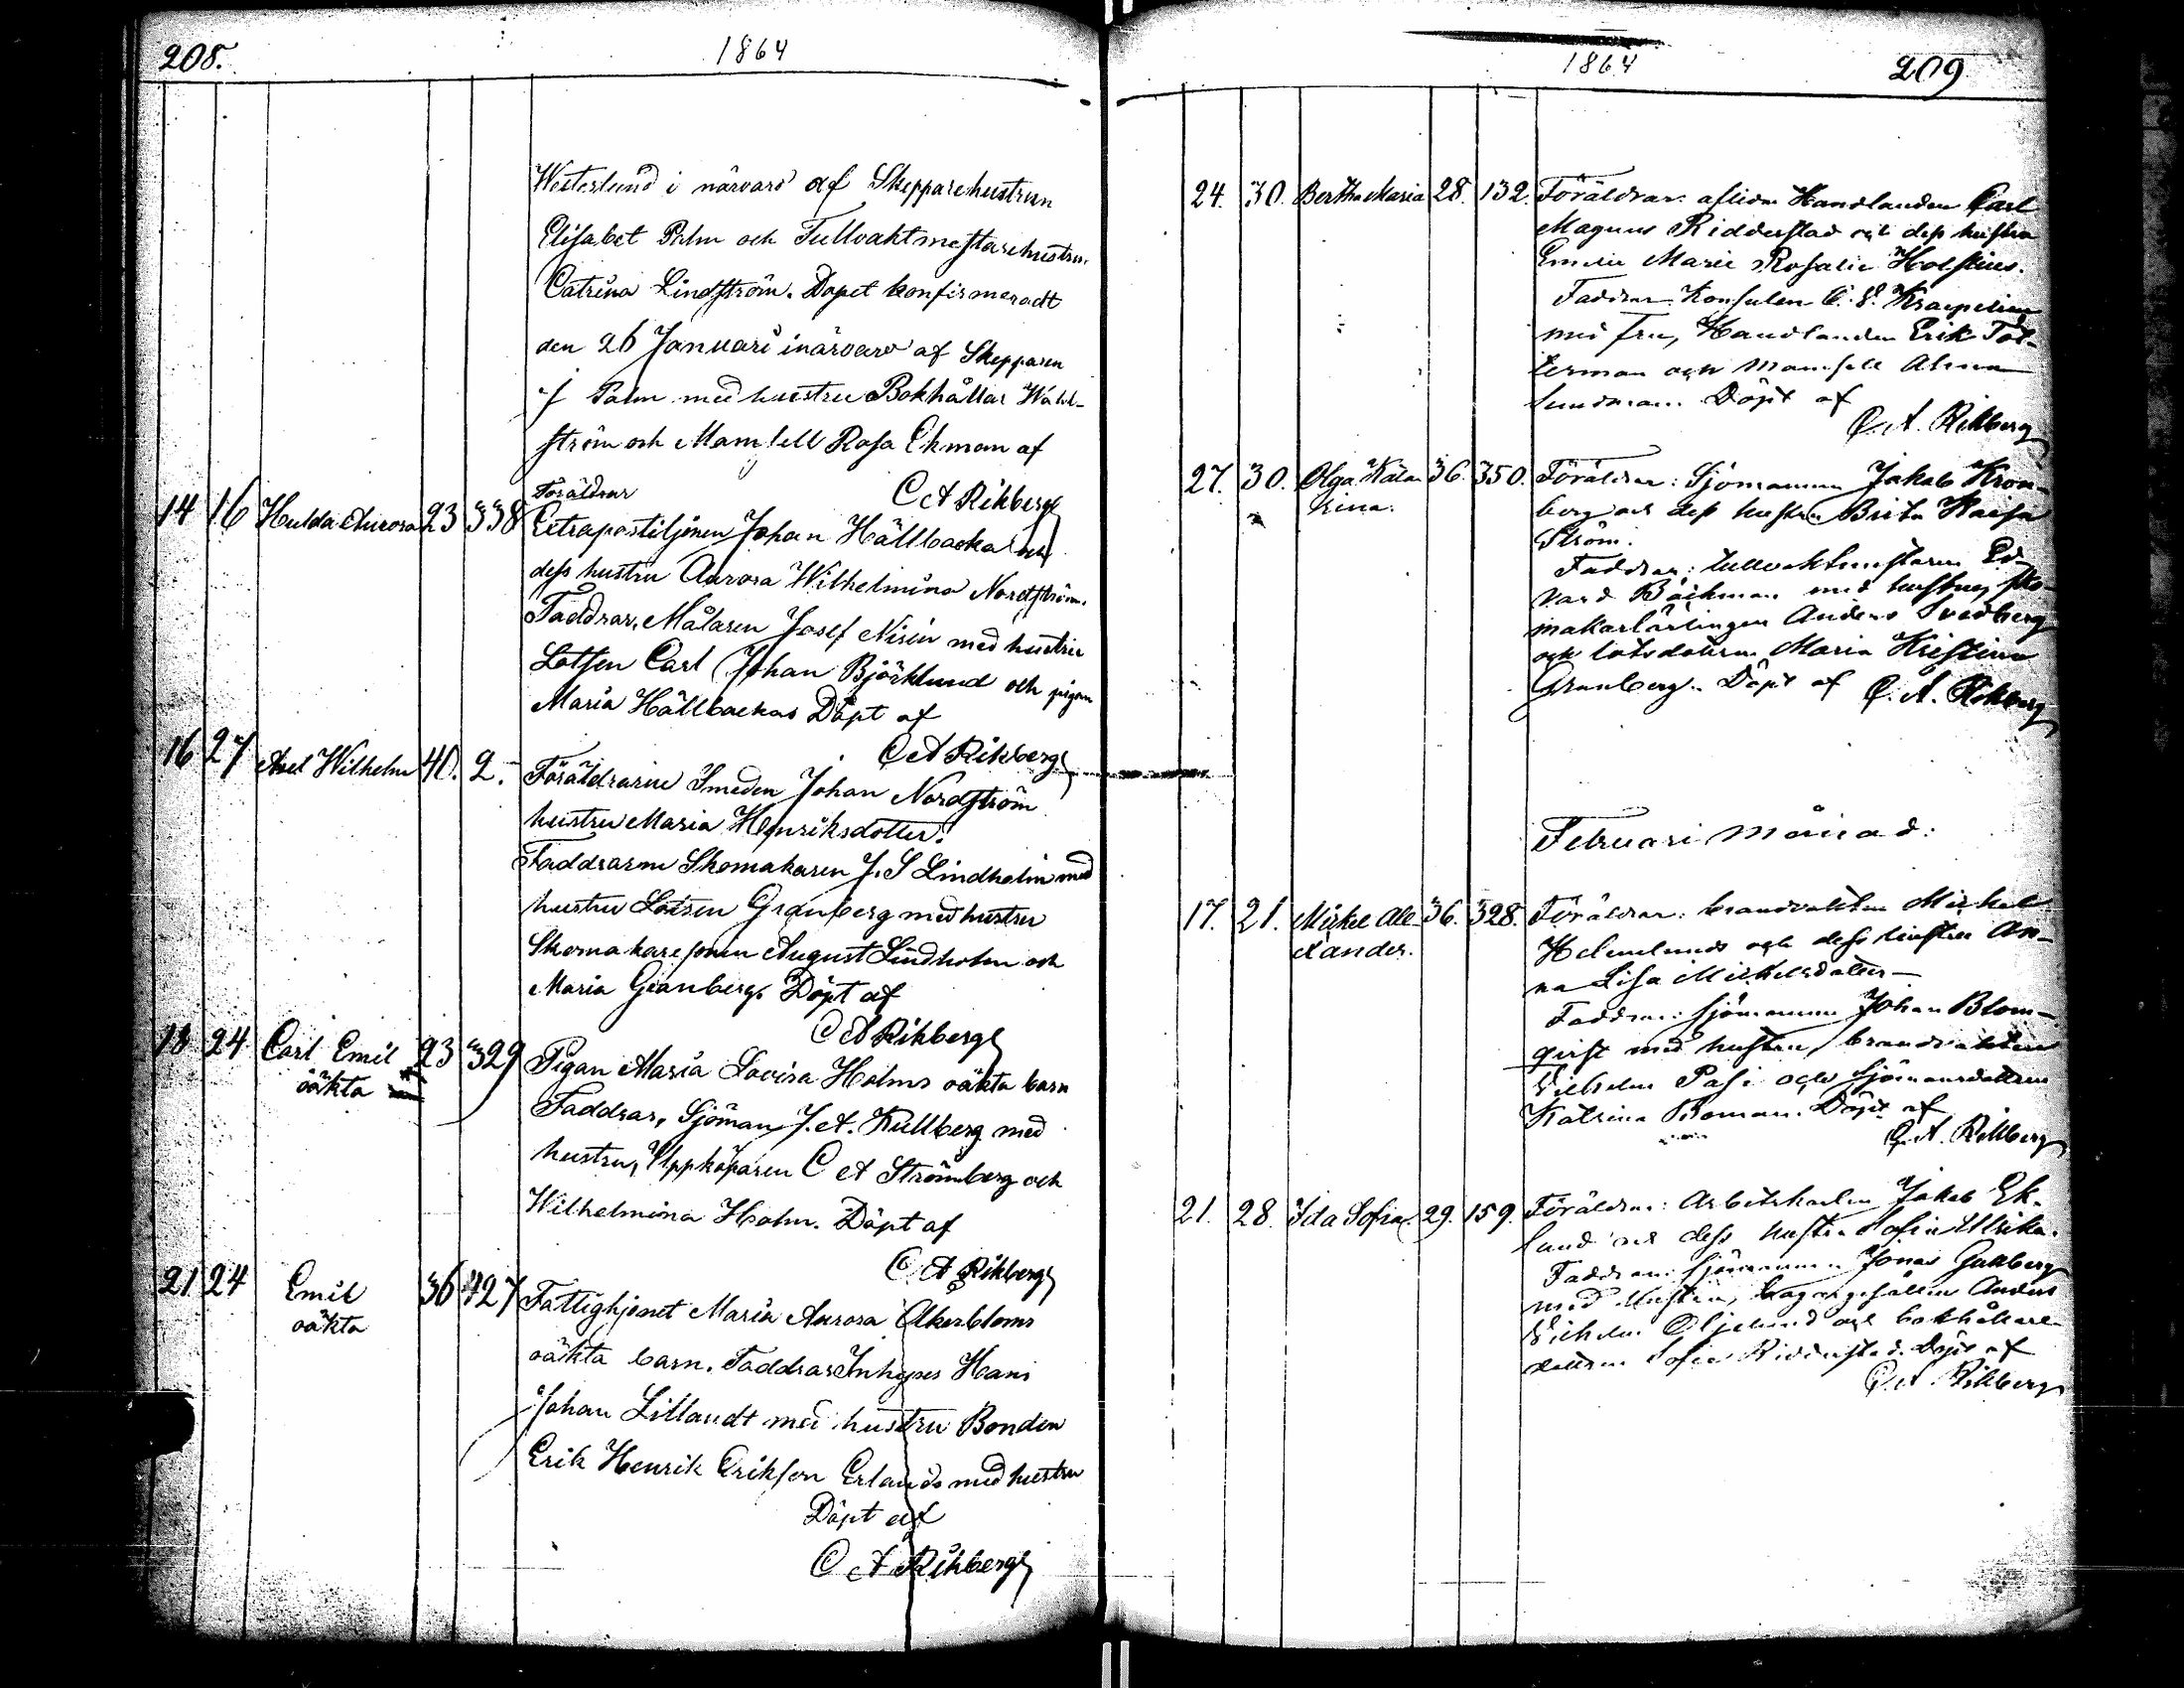 208.
1864
Westerlund i närvaro af Skepparehustrun
Elisabet Palm och Tullvaktmästarehustru
Catrina Lindström. Dopet konfirmeradt
den 26 Januari i närvaro af Skepparen
J Palm med hustru Bokhållar Wahl-
ström och Mamsell Rosa Ekman af
C A Rikberg
14 16 Hulda Aurora 23 338 Föräldrar
Extrapostiljonen Johan Hällbacka och
dess hustru Aurora Wilhelmina Nordström.
Faddrar, Målaren Josef Nisén med hustru
Lotsen Carl Johan Björklund och pigan
Maria Hällbackas Döpt af
C A Rikberg
16 27 Axel Wilhelm 40. 2. Föräldrarne Smeden Johan Nordström
hustru Maria Henriksdotter.
Faddrarne Skomakaren J. S Lindholm med
hustru Lotsen Granberg med hustru
Skomakaresonen August Lindholm och
Maria Granberg. Döpt af
C A Rikberg
18 24 Carl Emil 23 329 Pigan Maria Lovisa Holms oäkta barn
oäkta
Faddrar, Sjöman J. A. Kullberg med
hustru, Uppköparen C A Strömberg och
Wilhelmina Holm. Döpt af
C A Rikberg
21 24 Emil 36 427 Fattighjonet Maria Aurora Åkerbloms
oäkta
oäkta barn. Faddrar Inhyses Hans
Johan Lillandt med hustru Bonden
Erik Henrik Erikson Erlands med hustru
Döpt af
C A Rikberg
1864
209
24. 30. Bertha Maria 28. 132. Föräldrar: aflidne Handlanden Carl
Magnus Ridderstad och dess hustru
Emelie Marie Rosalie Holstius.
Faddrar: Konsulen C. E. Kraepelien
med fru, Handlanden Erik Töt-
terman och Mamsell Alma
Lundman. Döpt af
C. A. Rikberg
27. 30. Olga Kata- 36. 350. Föräldrar: Sjömannen Jakob Kron-
rina.
berg och dess hustru Brita Kaisa
Ström.
Faddrar: tullvaktmästaren Ed-
vard Bäckman med hustru, sko-
makarlärlingen Anders Svedberg
och lotsdottren Maria Kristina
Granberg. Döpt af C. A. Rikberg
Februari månad:
17. 21. Mickel Ale- 36. 328. Föräldrar: brandvakten Mickel
xander.
Helenelund och dess hustru An-
na Lisa Mickelsdotter
Faddrar: sjömannen Johan Blom-
qvist med hustru, brandvakten
Vilhelm Pasi och sjömansdottren
Katrina Boman. Döpt af
C. A. Rikberg
21. 28. Ida Sofia. 29. 159. Föräldrar: Arbetskarlen Jakob Ek-
lund och dess hustru Sofia Ulrika.
Faddrar: sjömannen Jonas Gullberg
med hustru, Anders
Vilhelm och bokhållare-
dottren Sofia Ridderstad. Döpt af
C. A. Rikberg